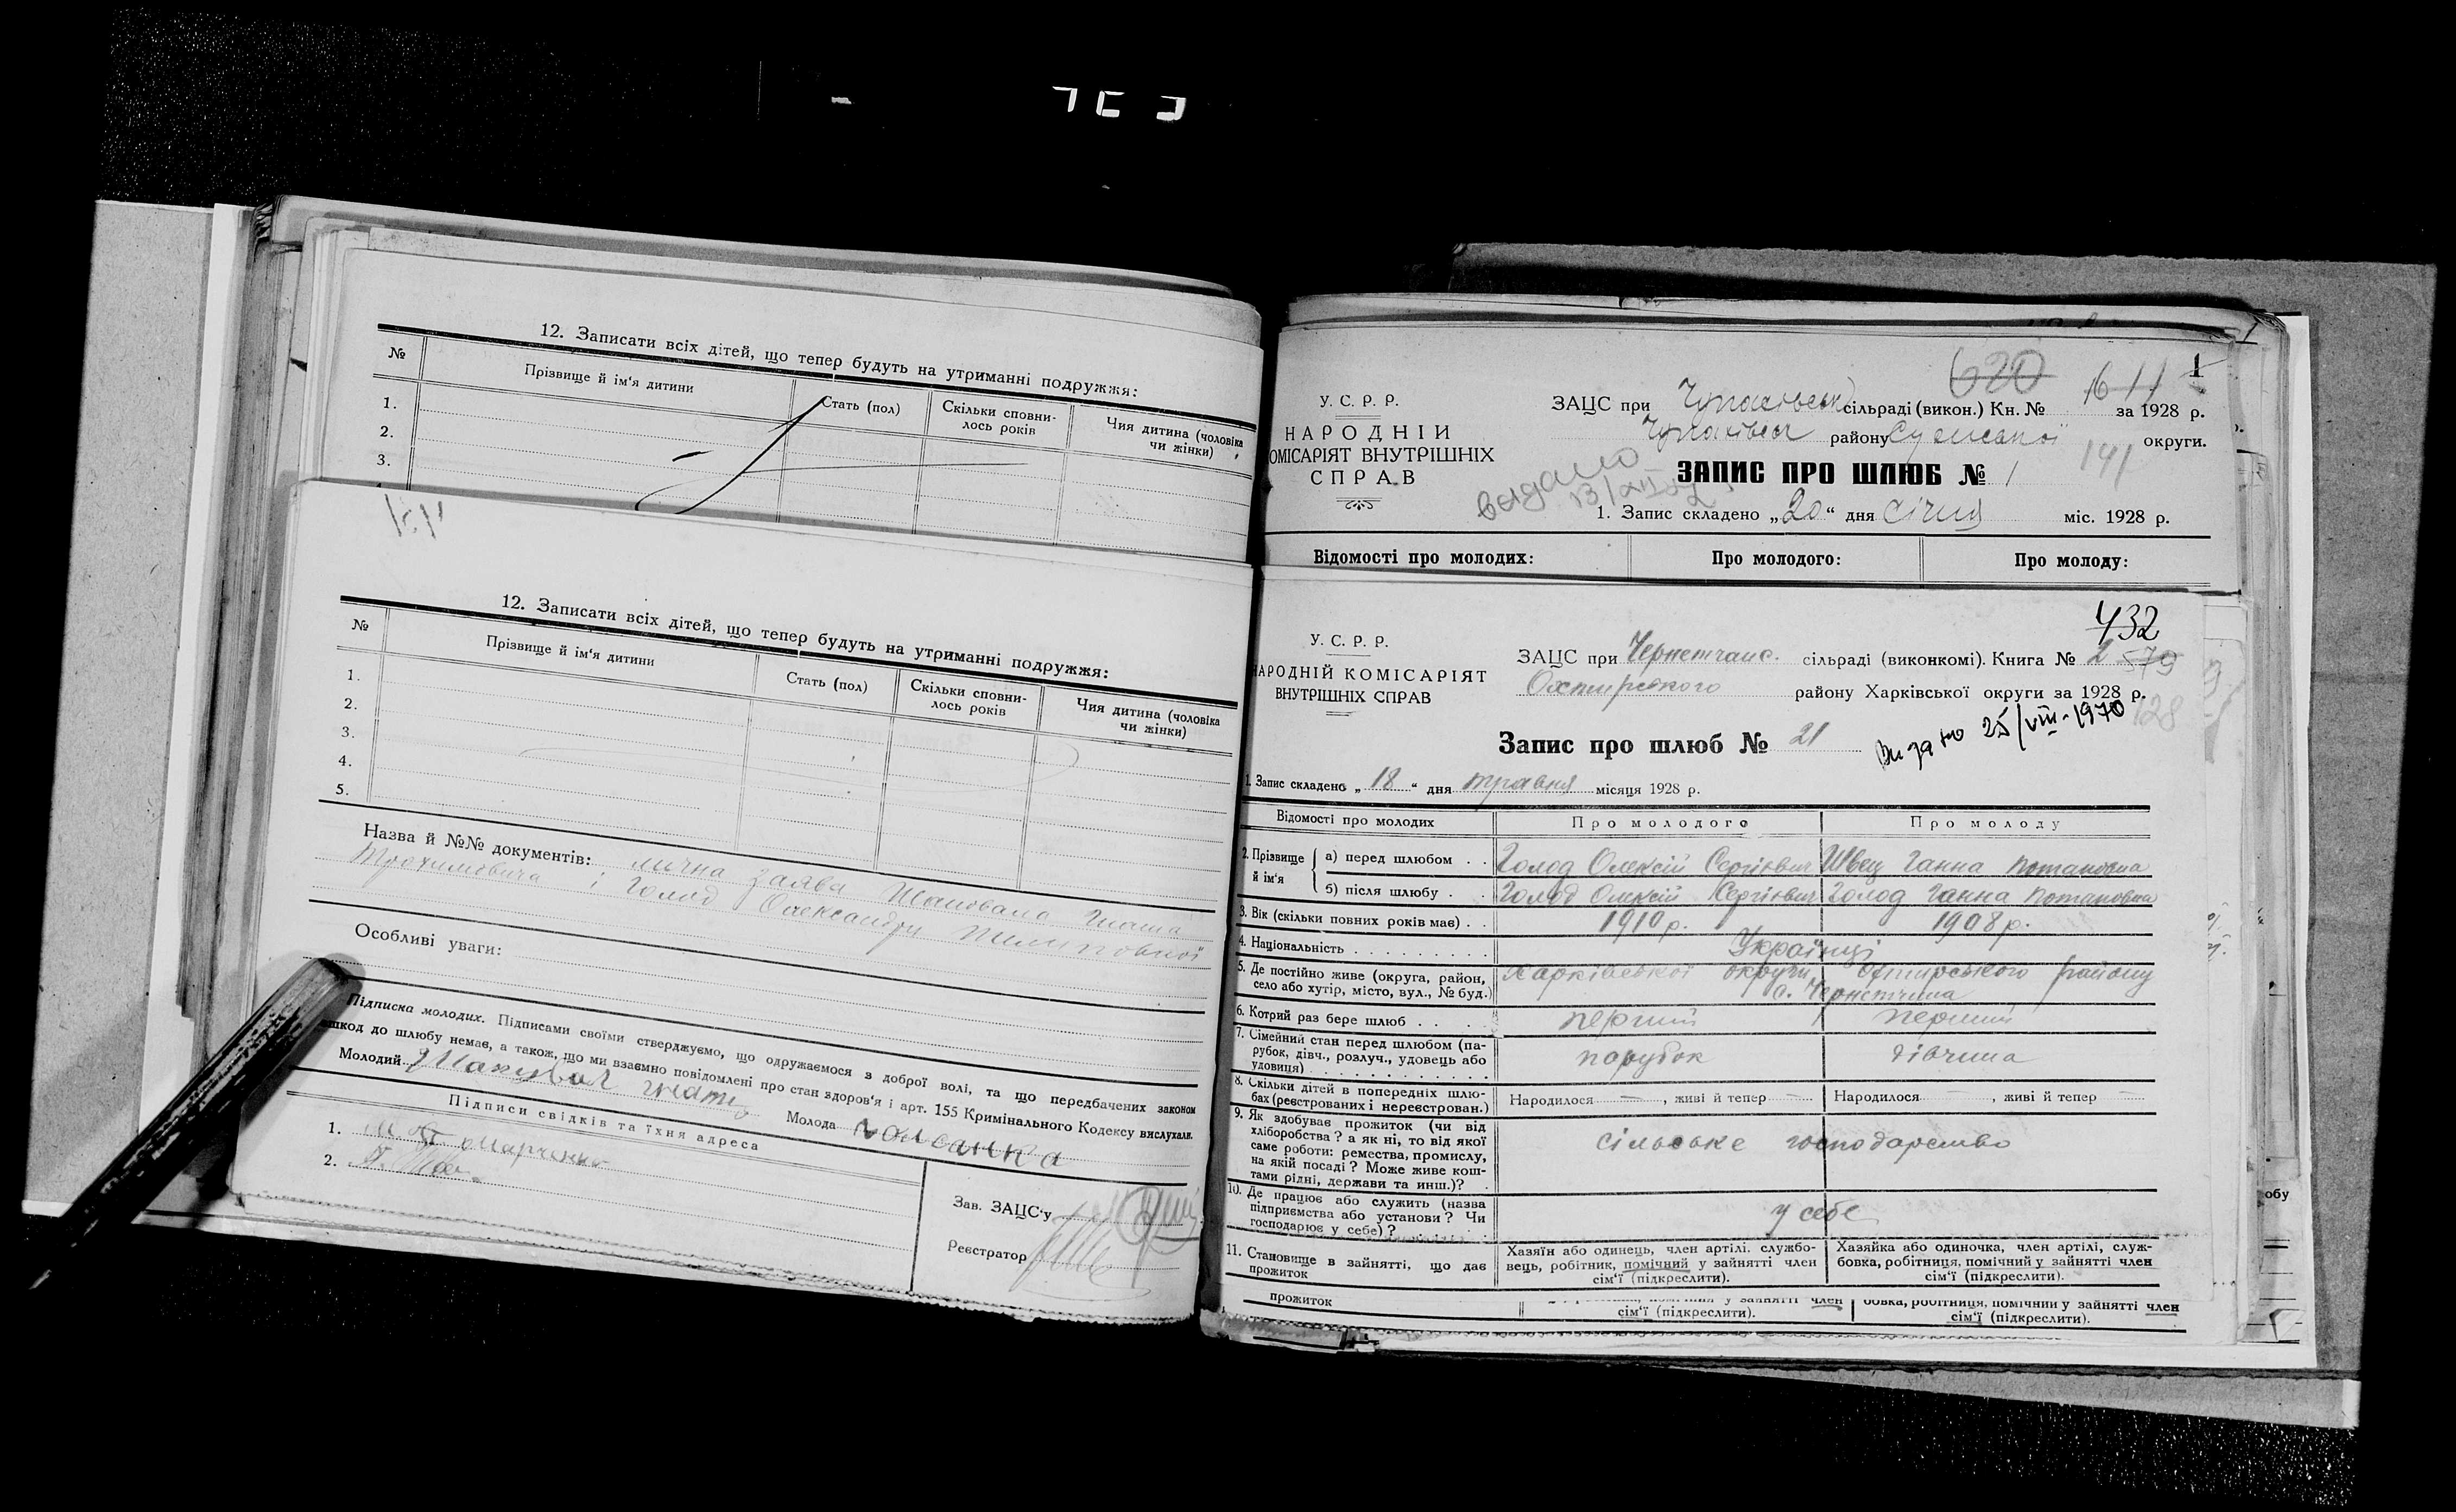 12. Записати всіх дітей, що тепер будуть на утриманні подружжя:
№ Прізвище й ім'я дитини Стать (пол) Скільки сповнилось років Чия дитина (чоловіка чи жінки)
1.
2.
3.
12. Записати всіх дітей, що тепер будуть на утриманні подружжя:
№ Прізвище й ім'я дитини Стать (пол) Скільки сповнилось років Чия дитина (чоловіка чи жінки)
1.
2.
3.
4.
5.
Назва й №№ документів: лична заява Шаповала Гната
Трохимовича і Голод Олександри Пилиповної
Особливі уваги:
Підписка молодих. Підписами своїми стверджуємо, що одружаємося з доброї волі, та що передбачених законом
шкод до шлюбу немає, а також, що ми взаємно повідомлені про стан здоров'я і арт. 155 Кримінального Кодексу вислухали.
Молодий Шаповал Гнат Молода
Підписи свідків та їхня адреса
1. Марченко
2.
Зав. ЗАЦС'у
Реєстратор
620 611 1
У. С. Р. Р.
НАРОДНІЙ
КОМІСАРІЯТ ВНУТРІШНІХ
СПРАВ
ЗАЦС при Чупахівськ сільраді (викон.) Кн. № за 1928 р.
Чупахівськ району Сумської округи.
141
видано
ЗАПИС ПРО ШЛЮБ № 1
1. Запис складено „20“ дня січня міс. 1928 р.
Відомості про молодих: Про молодого: Про молоду:
432
У. С. Р. Р.
НАРОДНІЙ КОМІСАРІЯТ
ВНУТРІШНІХ СПРАВ
ЗАЦС при Чернетчанс. сільраді (виконкомі). Книга № 2 579
Охтирського району Харківської округи за 1928 р.
128
Запис про шлюб № 21 Видано 25/VIII-1970
1. Запис складено „18“ дня травня місяця 1928 р.
Відомості про молодих Про молодого Про молоду
2. Прізвище й ім'я
а) перед шлюбом . . Голод Олексій Сергієвич Швец Ганна Потаповна
б) після шлюбу . . Голод Олексій Сергієвич Голод Ганна Потаповна
3. Вік (скільки повних років має) . . 1910 р. 1908 р.
4. Національність . . . . . . . . . Українці
5. Де постійно живе (округа, район, Харківської округи, Охтирського району
село або хутір, місто, вул., № буд.) с. Чернетчина
6. Котрий раз бере шлюб . . . . перший перший
7. Сімейний стан перед шлюбом (парубок, дівч., розлуч., удовець або удовиця) . . . парубок дівчина
8. Скільки дітей в попередніх шлюбах (реєстрованих і нереєстрован.) Народилося —, живі й тепер — Народилося —, живі й тепер —
9. Як здобуває прожиток (чи від
хліборобства? а як ні, то від якої
саме роботи: ремества, промислу, сільське господарство
на якій посаді? Може живе коштами рідні, держави та инш.)?
10. Де працює або служить (назва
підприємства або установи? Чи у себе
господарює у себе)?
11. Становище в зайнятті, що дає прожиток
Хазяїн або одинець, член артілі. службовець, робітник, помічний у зайнятті член сім'ї (підкреслити).
Хазяйка або одиночка, член артілі, службовка, робітниця, помічний у зайнятті член сім'ї (підкреслити).
прожиток
сім'ї (підкреслити).
бовка, робітниця, помічний у зайнятті член
сім'ї (підкреслити).
обу